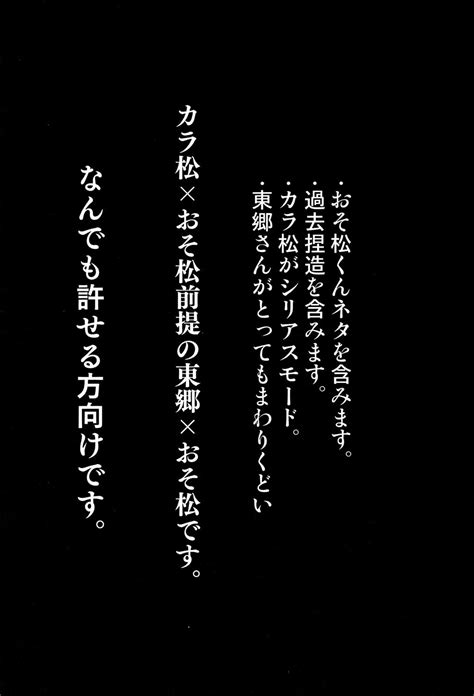 ・おそ松くんネタを含みます。
・過去捏造を含みます。
・カラ松がシリアスモード。
・東郷さんがとってもまわりくどい
カラ松×おそ松前提の東郷×おそ松です。
なんでも許せる方向けです。